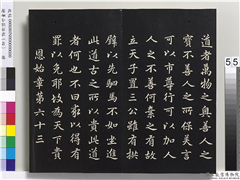 道者萬物之奧善人之
寶不善人之所保美言
可以市尊行可以加人
人之不善何棄之有故
立天子置三公雖有拱
璧以先駟馬不如坐進
此道古之所以貴此道
者何也不曰求以得有
罪以免耶故為天下貴
恩始章第六十三
5.5